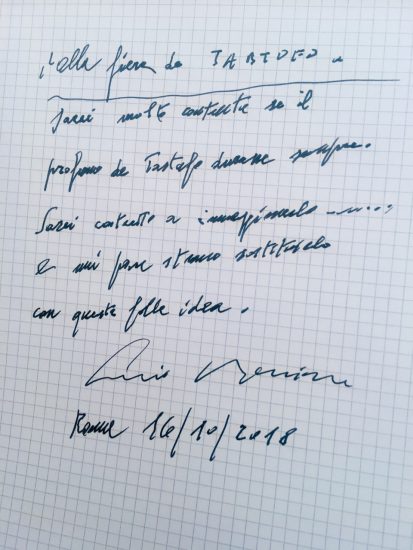 alla fiera da TARTUFO
Sarei molto contenta se il
profumo da Tartufo durasse sempre.
Sarei a immaginarlo
e mi pare strano sostituirlo
con questa folle idea.
Roma 16/10/2018